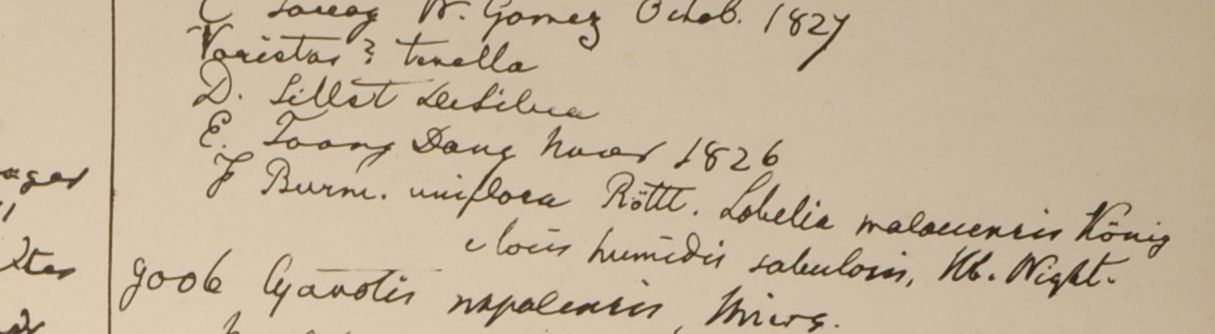 C Tavoy W. Gomez Octob. 1827
Varietas? tenella
D. Sillet DeSilva
E. Toong Dong 1826
F Burm. uniflora Röttl. Lobelia malaccensis König
e locis humidis sabulosis, Hb. Wight.
9006 Cyanotis nepalensis,